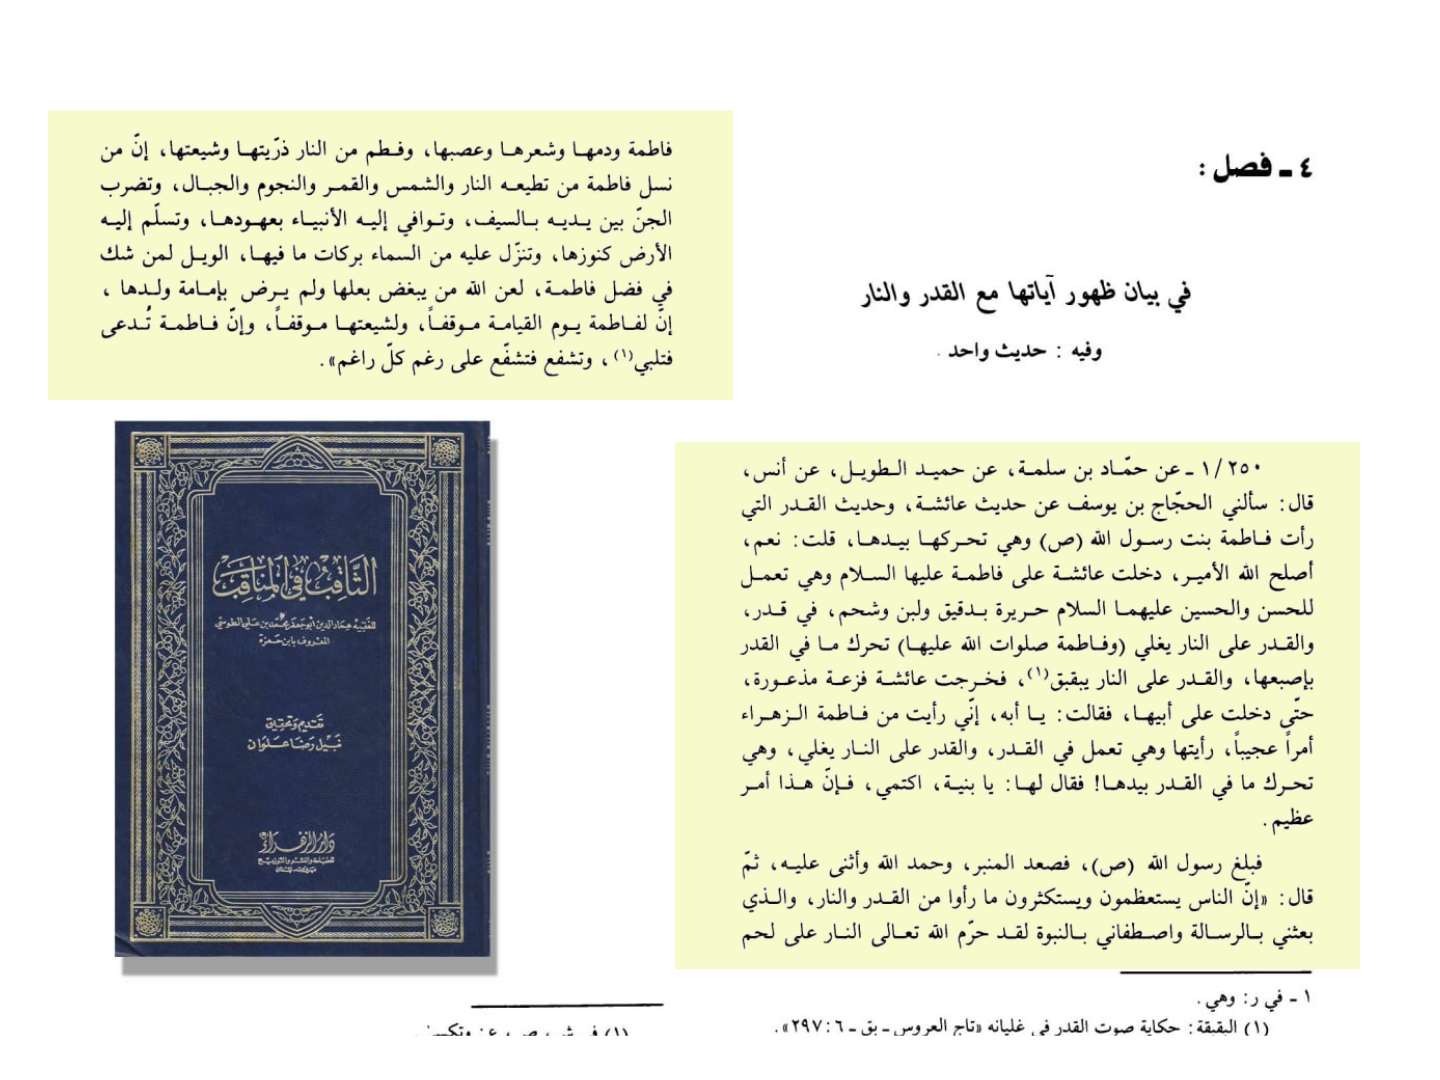 ٤ ـ فصل :
في بيان ظهور آياتها مع القدر والنار
وفيه : حديث واحد .
١/٢٥٠ ـ عن حمّاد بن سلمة، عن حميد الطويل، عن أنس،
قال: سألني الحجّاج بن يوسف عن حديث عائشة، وحديث القدر التي
رأت فاطمة بنت رسول الله (ص) وهي تحركها بيدها، قلت: نعم،
أصلح الله الأمير، دخلت عائشة على فاطمة عليها السلام وهي تعمل
للحسن والحسين عليهما السلام حريرة بدقيق ولبن وشحم، في قدر،
والقدر على النار يغلي (وفاطمة صلوات الله عليها) تحرك ما في القدر
بإصبعها، والقدر على النار يبقبق(١)، فخرجت عائشة فزعة مذعورة،
حتّى دخلت على أبيها، فقالت: يا أبه، إنّي رأيت من فاطمة الزهراء
أمراً عجيباً، رأيتها وهي تعمل في القدر، والقدر على النار يغلي، وهي
تحرك ما في القدر بيدها! فقال لها: يا بنية، اكتمي، فإنّ هذا أمر
عظيم.
فبلغ رسول الله (ص)، فصعد المنبر، وحمد الله وأثنى عليه، ثمّ
قال: «إنّ الناس يستعظمون ويستكثرون ما رأوا من القدر والنار، والذي
بعثني بالرسالة واصطفاني بالنبوة لقد حرّم الله تعالى النار على لحم
١ ـ في ر: وهي.
(١) البقبقة: حكاية صوت القدر في غليانه «تاج العروس ـ بق ـ ٦: ٢٩٧».
فاطمة ودمها وشعرها وعصبها، وفطم من النار ذرّيتها وشيعتها، إنّ من
نسل فاطمة من تطيعه النار والشمس والقمر والنجوم والجبال، وتضرب
الجنّ بين يديه بالسيف، وتوافي إليه الأنبياء بعهودها، وتسلّم إليه
الأرض كنوزها، وتنزّل عليه من السماء بركات ما فيها، الويل لمن شك
في فضل فاطمة، لعن الله من يبغض بعلها ولم يرض بإمامة ولدها ،
إنّ لفاطمة يوم القيامة موقفاً، ولشيعتها موقفاً، وإنّ فاطمة تُدعى
فتلبي(١)، وتشفع فتشفّع على رغم كلّ راغم».
الثاقب في المناقب
للفقيه عماد الدين ابو جعفر محمد بن علي الطوسي
المعروف بابن حمزة
تقديم وتحقيق
نبيل رضا علوان
دار الزهراء
للطباعة والنشر والتوزيع